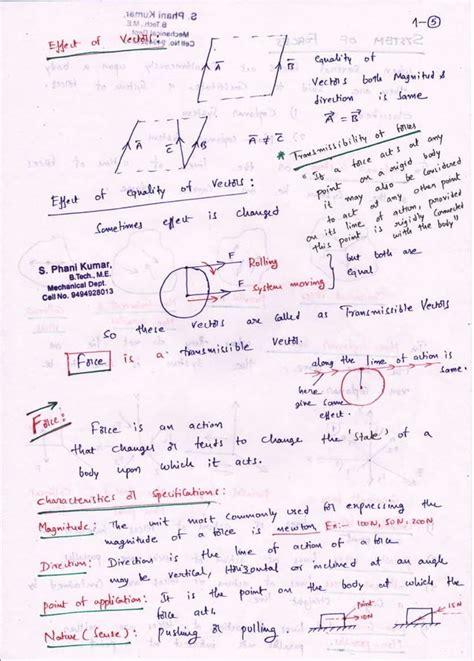 1-⑤
Effect of Vectors:
S. Phani Kumar,
B.Tech., M.E.
Mechanical Dept.
Equality of
Vectors both Magnitude &
direction is same
A⃗ = B⃗
A B
A⃗ C⃗ B⃗ A⃗ ≠ C⃗
* Transmissibility of forces
"If a force acts at any
point on a rigid body
it may also be considered
to act at any other point
on its line of action, provided
this point is rigidly connected
with the body"
Effect of equality of vectors:
Sometimes effect is changed
S. Phani Kumar,
B.Tech., M.E.
Mechanical Dept.
Cell No. 9494928013
F Rolling
F System moving
but both are
equal.
So these vectors are called as Transmissible Vectors
Force is a transmissible vector.
along the line of action is
same.
here
give same
effect.
Force:
Force is an action
that changes or tends to change the 'state' of a
body upon which it acts.
Characteristics or Specifications:
Magnitude: The unit most commonly used for expressing the
magnitude of a force is newton Ex:- 100N, 50N, 200N
Direction: Direction is the line of action of a force
may be vertical, Horizontal or inclined at an angle
point of application: It is the point on the body at which the
force acts.
Nature (Sense): Pushing or pulling.
point
10N
15N